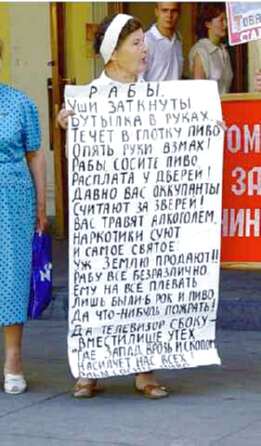 РАБЫ.
УШИ ЗАТКНУТЫ
БУТЫЛКА В РУКАХ.
ТЕЧЕТ В ГЛОТКУ ПИВО
ОПЯТЬ РУКИ ВЗМАХ!
РАБЫ, СОСИТЕ ПИВО
РАСПЛАТА У ДВЕРЕЙ!
ДАВНО ВАС ОККУПАНТЫ
СЧИТАЮТ ЗА ЗВЕРЕЙ!
ВАС ТРАВЯТ АЛКОГОЛЕМ,
НАРКОТИКИ СУЮТ
И САМОЕ СВЯТОЕ-
УЖ ЗЕМЛЮ ПРОДАЮТ!!
РАБУ ВСЕ БЕЗРАЗЛИЧНО
ЕМУ НА ВСЕ ПЛЕВАТЬ
ЛИШЬ БЫЛИ-Б РОК И ПИВО
ДА ЧТО-НИБУДЬ ПОЖРАТЬ!
ДА ТЕЛЕВИЗОР СБОКУ-
ВМЕСТИЛИЩЕ УТЕХ
ГДЕ ЗАПАД ВРОЗЬ И СКОПОМ
НАСИЛУЕТ НАС ВСЕХ!
ТОВА
ТОМ
ЗА
ЧИН